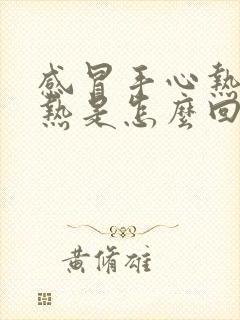 感冒手心熱
熱是怎麼回
黃脩雄